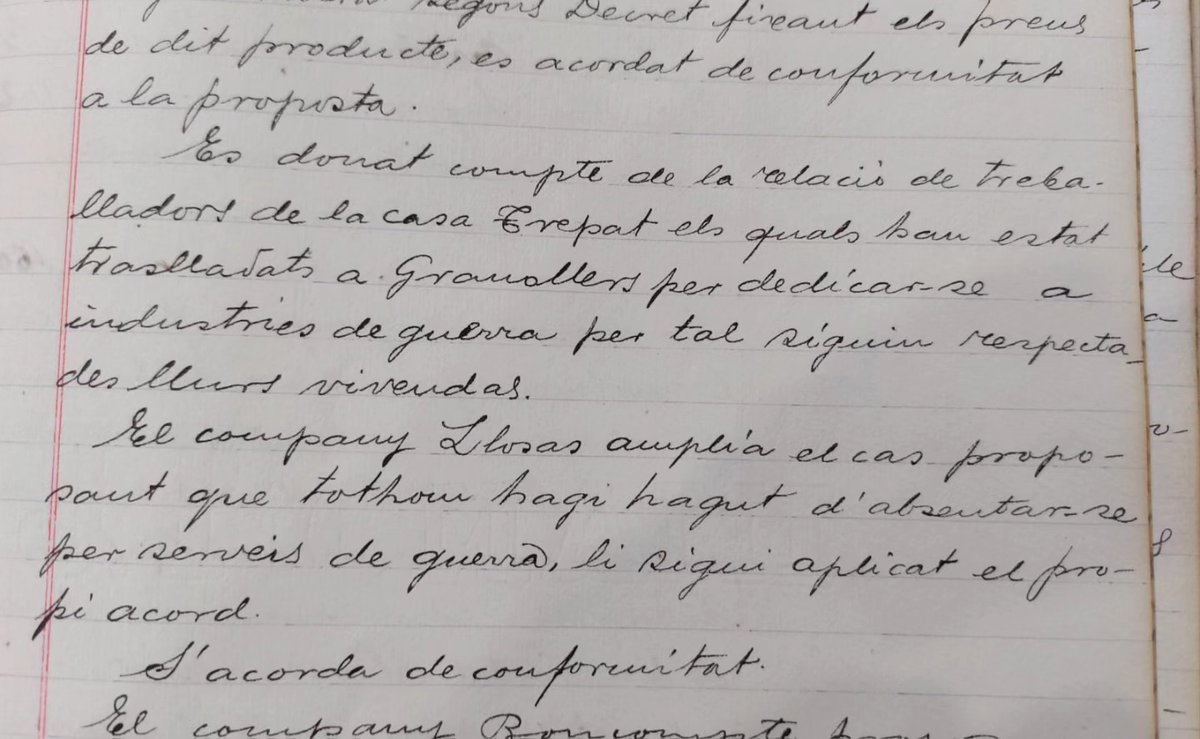 segons Decret fixant els preus
de dit producte, es acordat de conformitat
a la proposta.
Es donat compte de la relació de treba-
lladors de la casa Trepat els quals han estat
traslladats a Granollers per dedicar-se a
industries de guerra per tal siguin respecta-
des llurs vivendas.
El company Llosas amplía el cas propo-
sant que tothom hagi hagut d'absentar-se
per serveis de guerra, li sigui aplicat el pro-
pi acord.
S'acorda de conformitat.
El company Boncompte